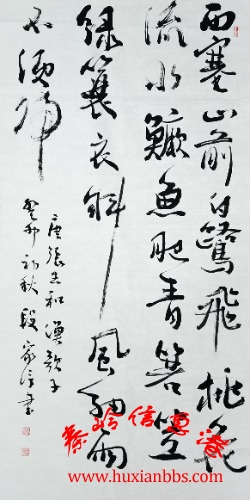 西塞山前白鷺飛桃花
流水鱖魚肥青箬笠
綠蓑衣斜風細雨
不須歸
唐張志和漁歌子
癸卯初秋 段家書
秦岭信息港
www.huxianbbs.com